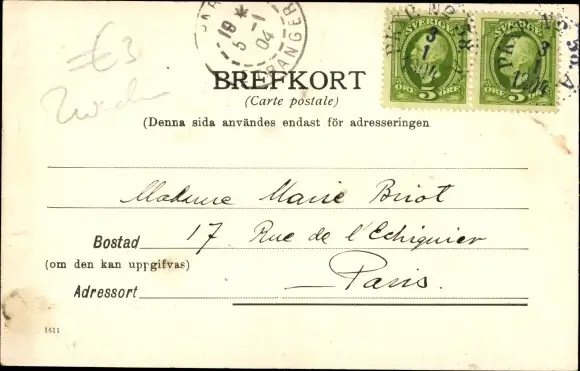 €3
PAR
18 *
5 -1
04
ETRANGER
SVERIGE SVERIGE
PKXP No 38 A
3
1
1904
5 ÖRE 5 ÖRE
BREFKORT
(Carte postale)
(Denna sida användes endast för adresseringen
Madame Marie Briot
Bostad 17 Rue de l'Echiquier
(om den kan uppgifvas)
Paris.
Adressort
1611